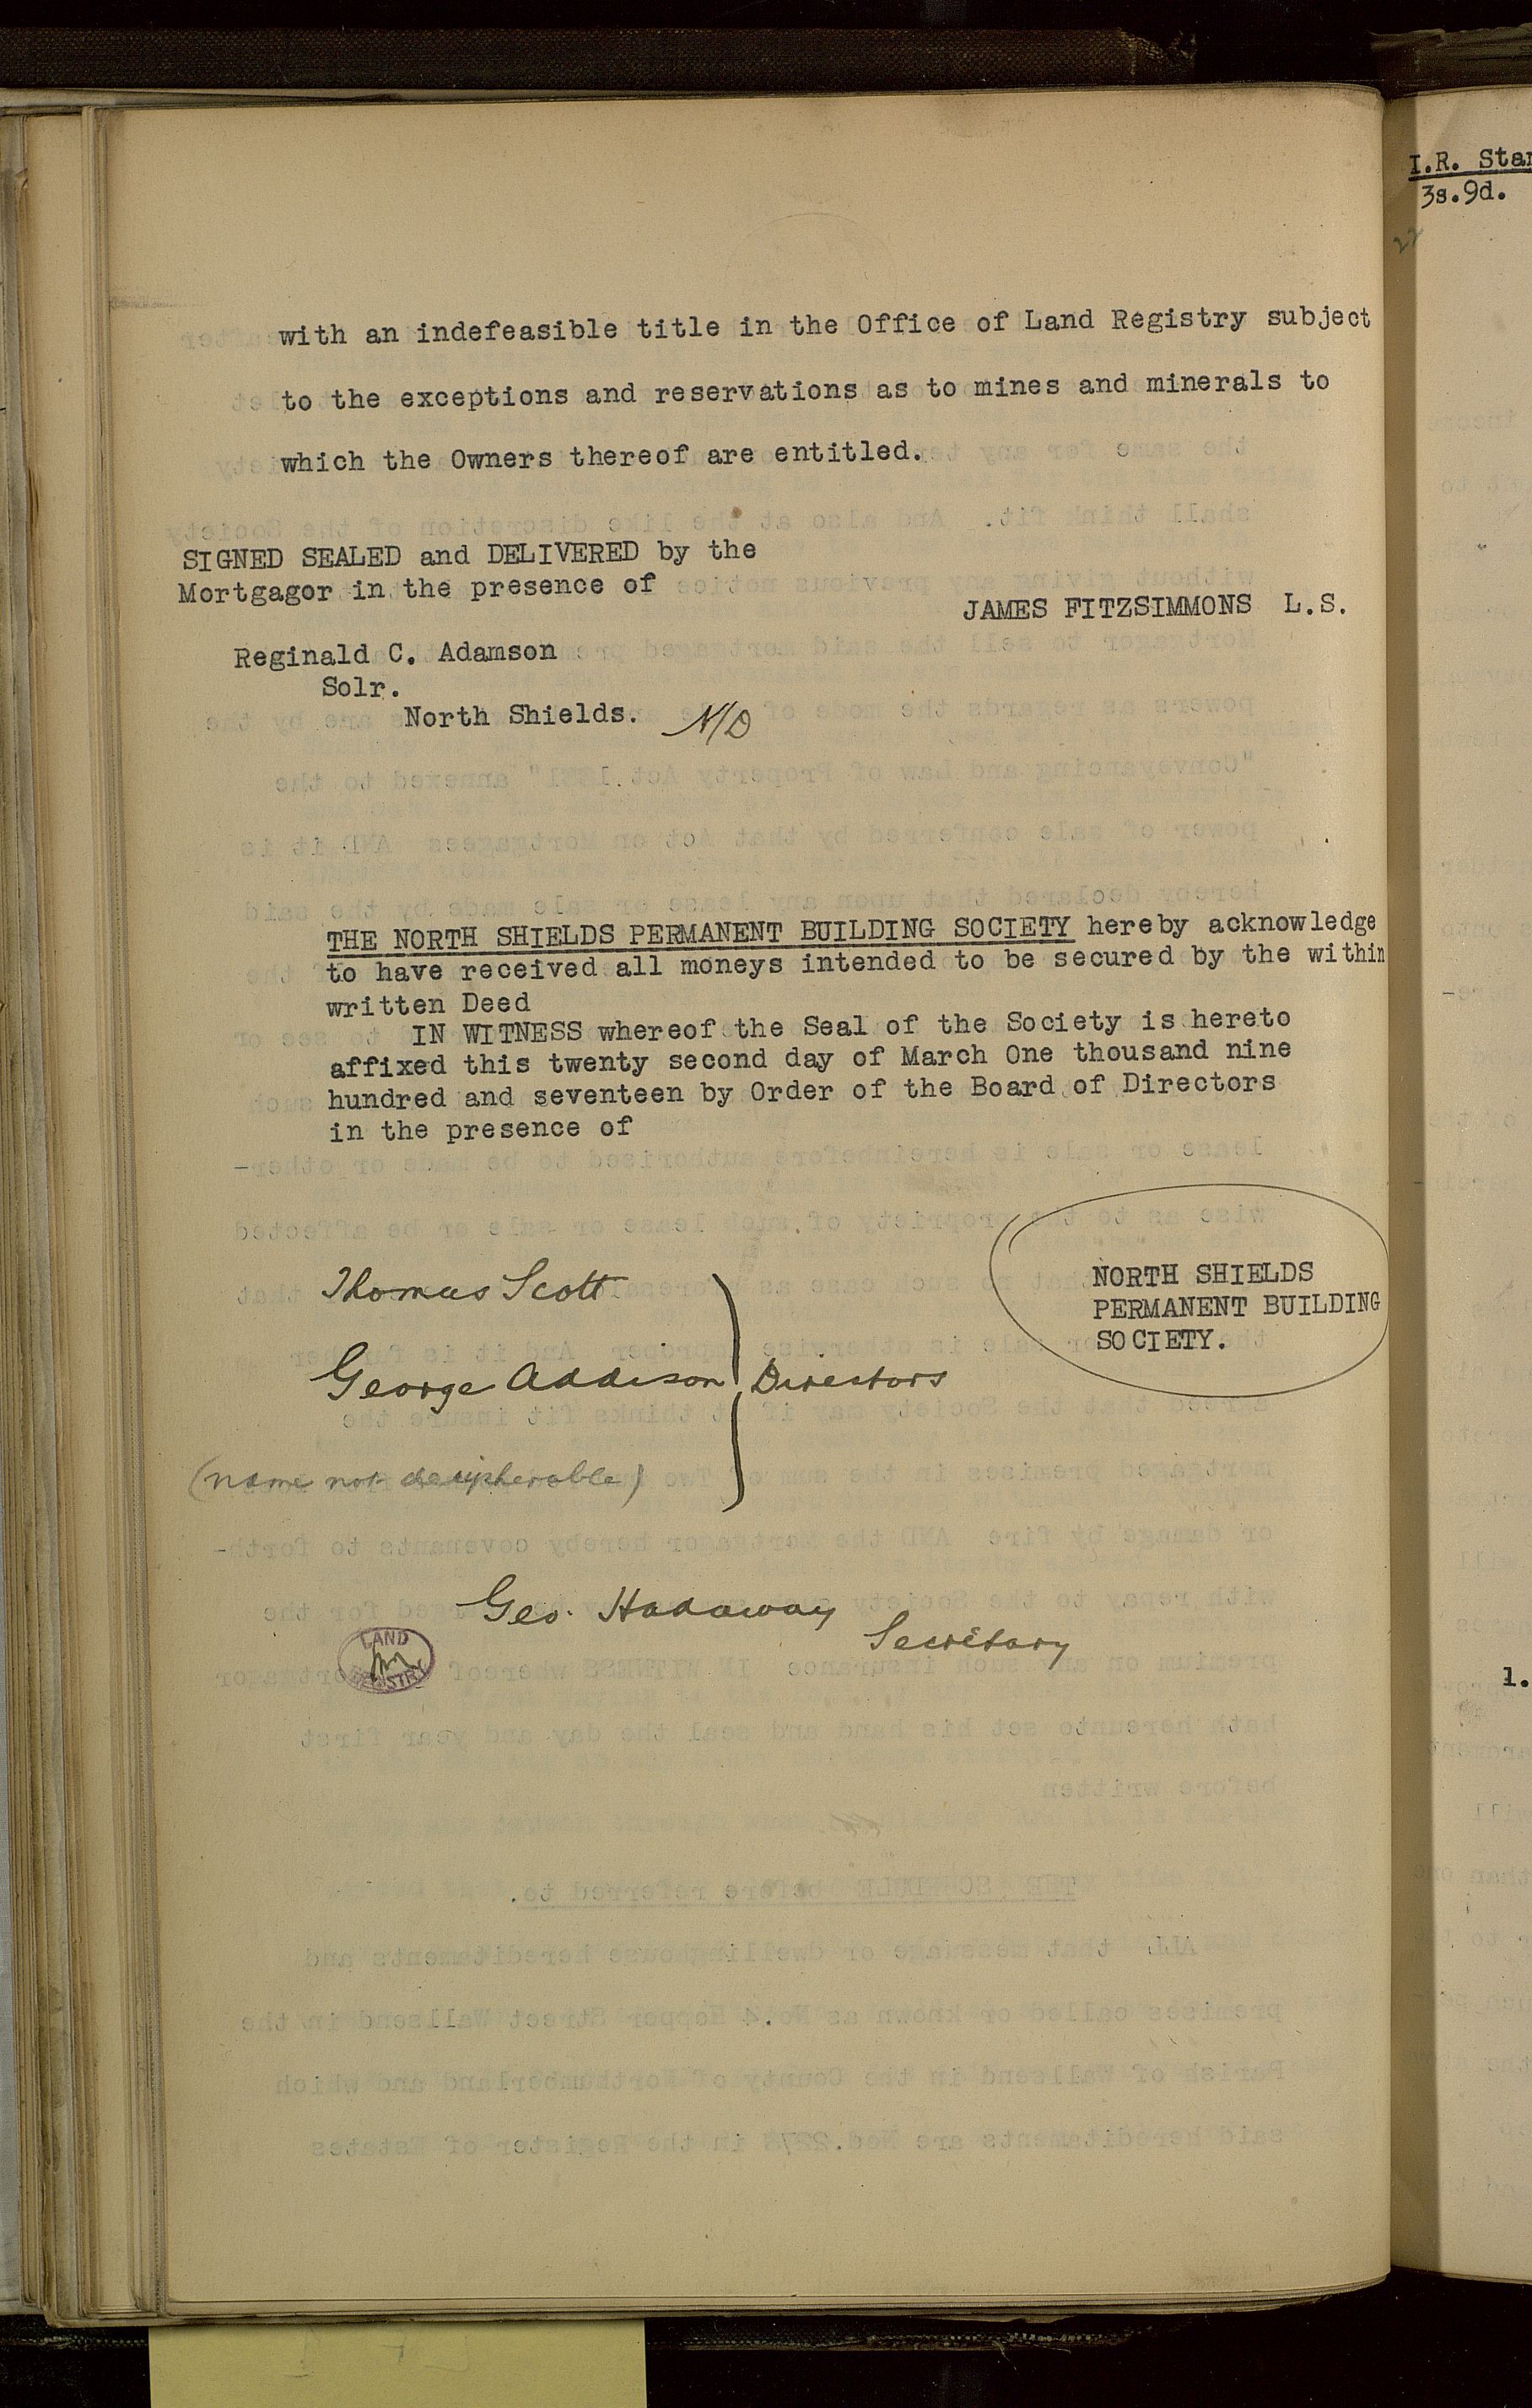 with an indefeasible title in the Office of Land Registry subject
to the exceptions and reservations as to mines and minerals to
which the Owners thereof are entitled.
SIGNED SEALED and DELIVERED by the
Mortgagor in the presence of
JAMES FITZSIMMONS L.S.
Reginald C. Adamson
Solr.
North Shields. N/D
THE NORTH SHIELDS PERMANENT BUILDING SOCIETY hereby acknowledge
to have received all moneys intended to be secured by the within
written Deed
IN WITNESS whereof the Seal of the Society is hereto
affixed this twenty second day of March One thousand nine
hundred and seventeen by Order of the Board of Directors
in the presence of
NORTH SHIELDS
PERMANENT BUILDING
SOCIETY.
Thomas Scott
George Addison Directors
(name not decipherable)
Geo. Hadaway
Secretary
LAND
REGISTRY
I.R. Star
3s.9d.
22
1.